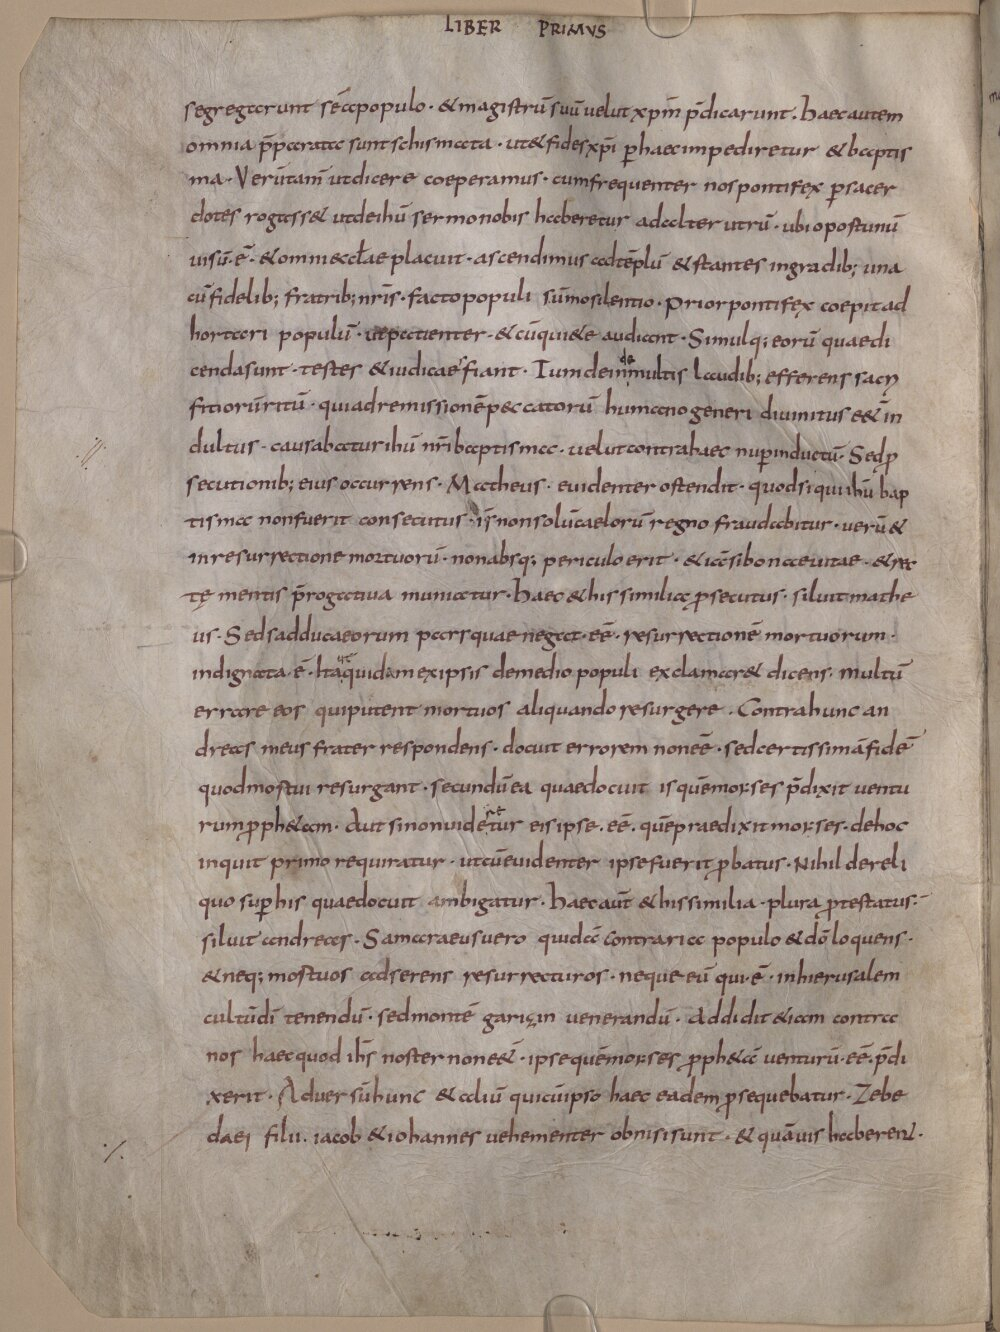 LIBER PRIMVS
segregarunt sē apopulo · & magistrū suū uelut xp̄m p̄dicarunt . haec autem
omnia p̄parata sunt schismata · ut & fides xp̄i p haec impediretur & baptis
ma · Verūtam̄ ut dicere coeperamus · cum frequenter nos pontifex p sacer
dotes rogass& ut de ihū sermo nobis haberetur ad alterutrū · ubi oportunū
uisū · ē · & omni eccłae placuit · ascendimus ad tēplū & stantes in gradib; una
cū fidelib; fratrib; nr̄is · facto populi sūmo silentio · Prior pontifex coepit ad
hortari populū · ut patienter · & cū quiete audiant · Simulq; eorū quae di
cenda sunt · testes & iudicaes fiant · Tum dein de multis laudib; efferens sacri
ficiorū ritū · qui ad remissionē peccatorū humano generi diuinitus eēt in
dultus · causabatur ihū nr̄i baptisma · uelut contra haec nup inductū · Sed p
secutionib; eius occurrens · Matheus · euidenter ostendit · quod siqui ihū bap
tisma non fuerit consecutus · is non solū caelorū regno fraudabitur · uerū &
in resurrectione mortuorū · non absq; periculo erit · & iā si bonae uitae · & rec
tę mentis p̄rogatiua muniatur · haec & his similia p̄secutus · siluit mathe
us · Sed sadducaeorum pars quae negat · eē · resurrectionē mortuorum ·
indignata · ē · Ita quidam ex ipsis de medio populi exclamar& dicens · multū
errare eos qui putent mortuos aliquando resurgere · Contra hunc an
dreas meus frater respondens · docuit errorem non eē · sed certissimā fidē
quod mortui resurgant · secundū ea quae docuit is quē moises p̄dixit ventu
rum pph&am · Aut si non uidetur eis ipse · eē · quē praedixit moises · de hoc
inquit primo requiratur · ut cū euidenter ipse fuerit pbatus · Nihil de reli
quo sup his quae docuit ambigatur · haec aūt & his similia · plura p̄testatus ·
siluit andreas · Samaraeus uero quidā contraria populo & dō loquens ·
& neq; mortuos adserens resurrecturos · neque eū qui · ē · in hierusalem
cultū dī tenendū · sed montē garizin uenerandū · Addidit & iam contra
nos haec quod ihs̄ noster non eēt · ipse quē moises pph&ā venturū · eē · p̄di
xerit · Aduersū hunc & aliū qui cū ipso haec eadem p̄sequebatur · Zebe
daei filii · iacob & iohannes uehementer obnisi sunt · & quāuis haberent ·